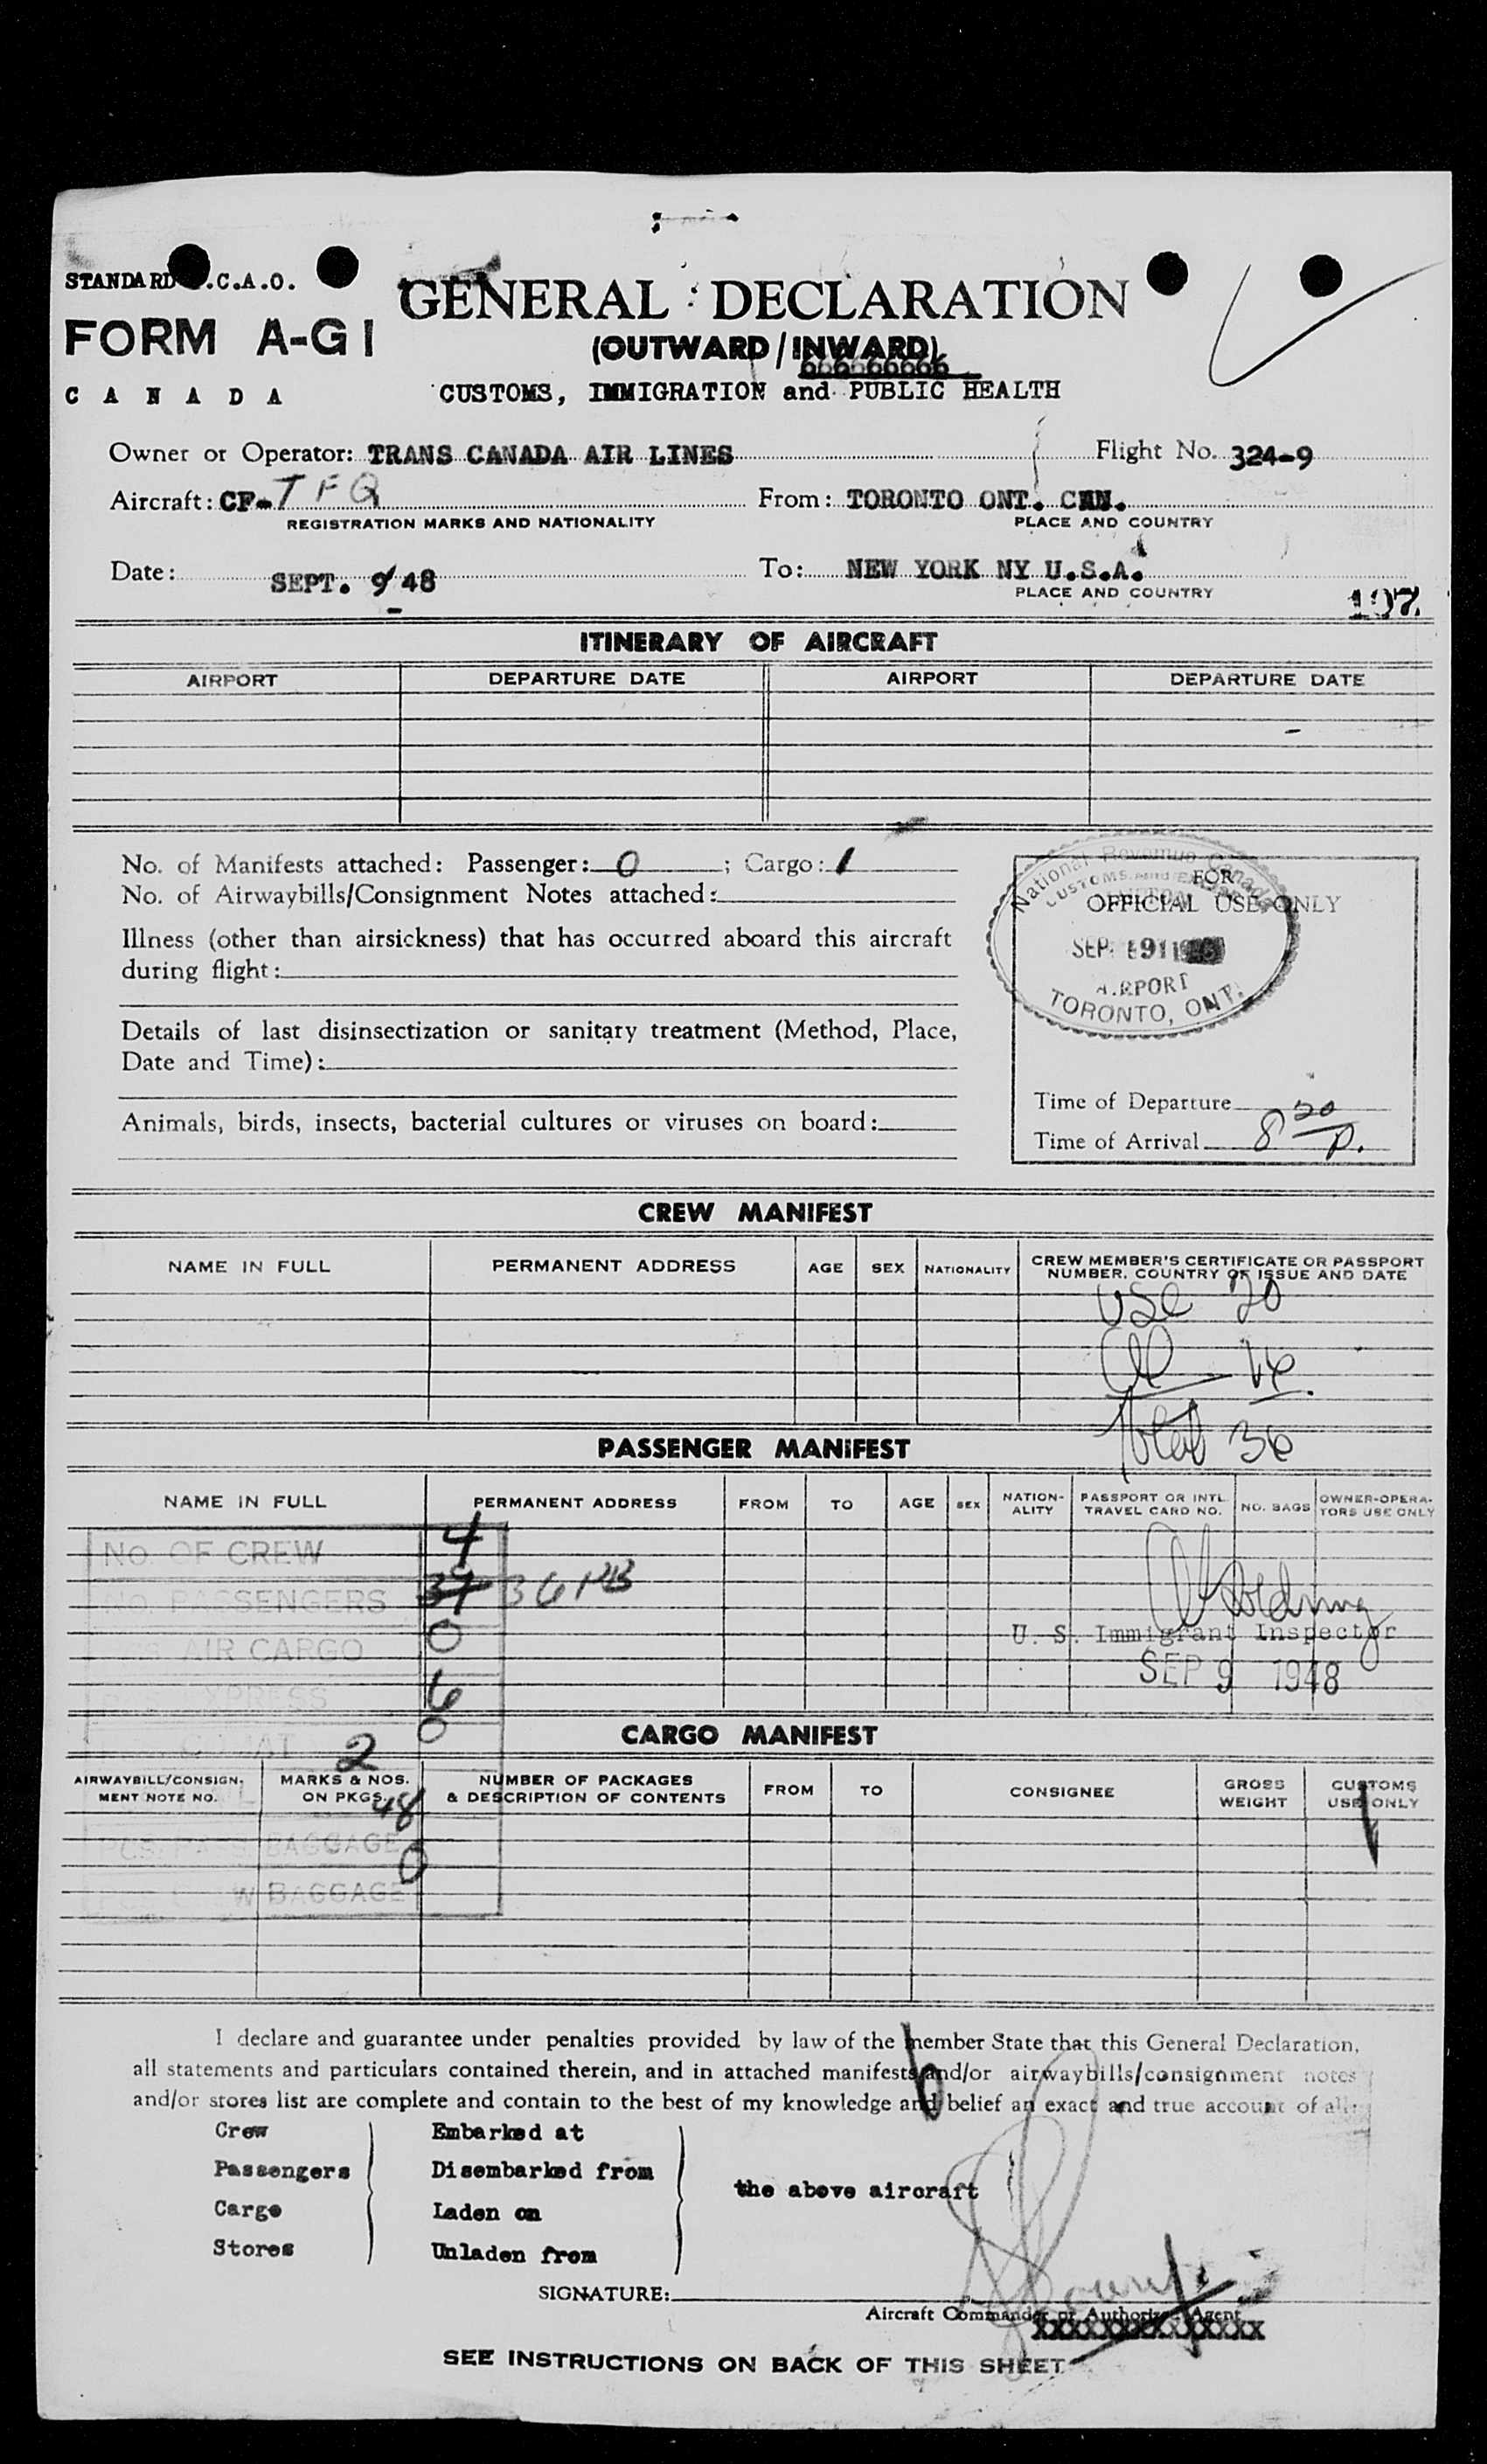 STANDARD .C.A.O.
FORM A-G1
CANADA
GENERAL DECLARATION
(OUTWARD/INWARD)
CUSTOMS, IMMIGRATION and PUBLIC HEALTH
Owner or Operator: TRANS CANADA AIR LINES Flight No. 324-9
Aircraft: CF-TFQ From: TORONTO ONT. CAN.
REGISTRATION MARKS AND NATIONALITY PLACE AND COUNTRY
Date: SEPT. 9/48 To: NEW YORK NY U.S.A.
PLACE AND COUNTRY
107
ITINERARY OF AIRCRAFT
AIRPORT DEPARTURE DATE AIRPORT DEPARTURE DATE
No. of Manifests attached: Passenger: 0; Cargo: 1
No. of Airwaybills/Consignment Notes attached:
Illness (other than airsickness) that has occurred aboard this aircraft
during flight:
Details of last disinsectization or sanitary treatment (Method, Place,
Date and Time):
Animals, birds, insects, bacterial cultures or viruses on board:
FOR
OFFICIAL USE ONLY
National Revenue Canada
CUSTOMS and EXCISE
SEP 9
AIRPORT
TORONTO, ONT.
Time of Departure
Time of Arrival 8 20 p.
CREW MANIFEST
NAME IN FULL PERMANENT ADDRESS AGE SEX NATIONALITY CREW MEMBER'S CERTIFICATE OR PASSPORT
NUMBER, COUNTRY OF ISSUE AND DATE
USC 20
Al 16
Total 36
PASSENGER MANIFEST
NAME IN FULL PERMANENT ADDRESS FROM TO AGE SEX NATION-ALITY PASSPORT OR INTL. TRAVEL CARD NO. NO. BAGS OWNER-OPERA-TORS USE ONLY
No. OF CREW 4
No. PASSENGERS 37 36
AIR CARGO 0
EXPRESS 6
0
2
48
PCS. PASS BAGGAGE 0
CREW BAGGAGE
U. S. Immigrant Inspector
SEP 9 1948
CARGO MANIFEST
AIRWAYBILL/CONSIGN-MENT NOTE NO. MARKS & NOS. ON PKGS. NUMBER OF PACKAGES & DESCRIPTION OF CONTENTS FROM TO CONSIGNEE GROSS WEIGHT CUSTOMS USE ONLY
I declare and guarantee under penalties provided by law of the member State that this General Declaration,
all statements and particulars contained therein, and in attached manifests and/or airwaybills/consignment notes
and/or stores list are complete and contain to the best of my knowledge and belief an exact and true account of all:
Crew Embarked at
Passengers Disembarked from
the above aircraft
Cargo Laden on
Stores Unladen from
SIGNATURE:
Aircraft Commander or Authorized Agent
XXXXXXXXXXXXXXX
SEE INSTRUCTIONS ON BACK OF THIS SHEET